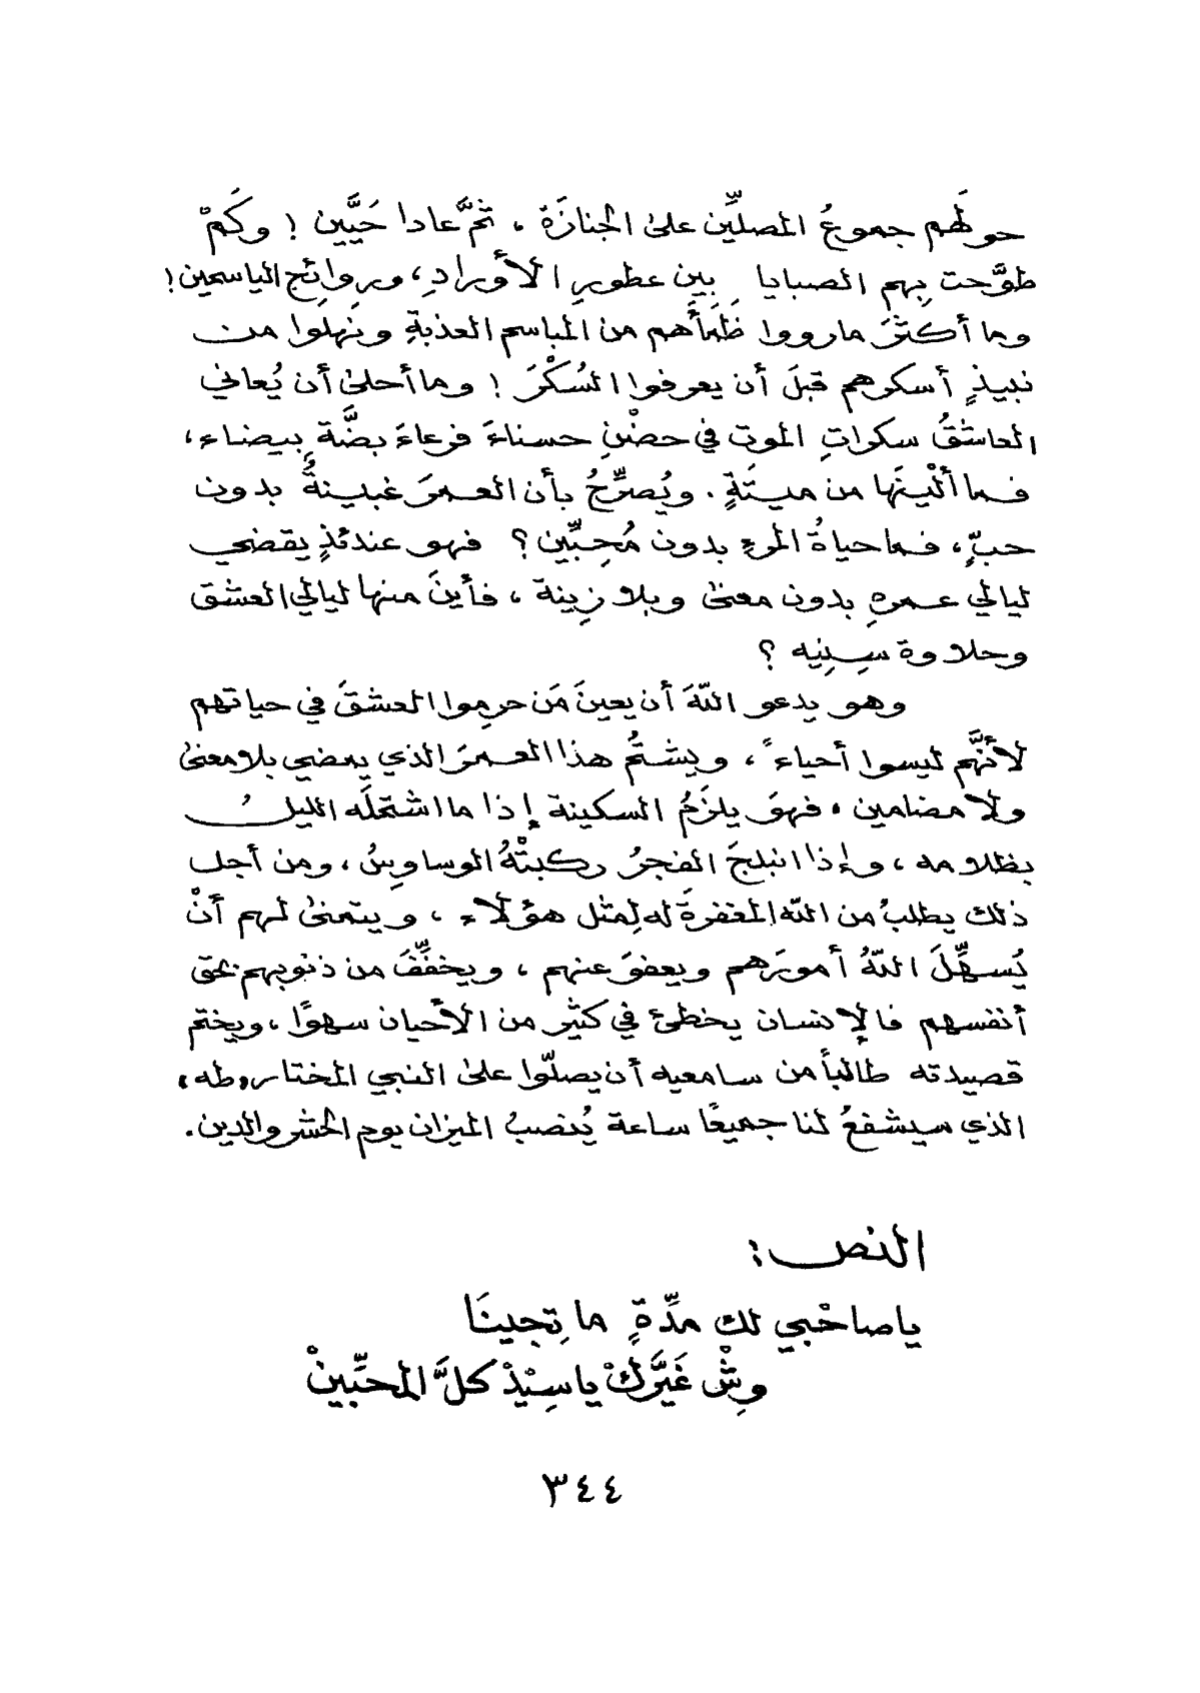 حولَهم جموعُ المصلِّين على الجنازَة ، ثمَّ عادا حَيَّين ! وكَمْ
طوَّحت بِهم الصبايا بين عطورِ الأورادِ، وروائح الياسمين !
وما أكثرَ ما رووا ظَمَأَهم من المباسم العذبةِ ونَهِلُوا من
نبيذٍ أسكرهم قبلَ أن يعرفوا السُكْرَ ! وما أحلى أن يُعاني
العاشقُ سكراتِ الموت في حضْنِ حسناءَ فرعاءَ بضَّةٍ بيضاء ،
فما ألْينَها من ميتَةٍ . ويُصرِّحُ بأن العمرَ غبينةٌ بدون
حبٍّ ، فما حياةُ المرءِ بدون مُحِبِّين ؟ فهو عندئذٍ يقضي
ليالي عمرهِ بدون معنى وبلا زينة ، فأينَ منها ليالي العشق
وحلاوة سِنِيه ؟
وهو يدعو اللّهَ أن يعينَ مَن حرِموا العشقَ في حياتهم
لأنَّهم ليسوا أحياءً ، ويشتُم هذا العمرَ الذي يمضي بلا معنى
ولا مضامين ، فهوَ يلزَمُ السكينة إذا ما اشتملَه الليلُ
بظلامه ، وإذا انبلجَ الفجرُ ركبتْهُ الوساوِسُ ، ومن أجل
ذلك يطلبُ من اللّه المغفرةَ له لِمثل هؤلاء ، ويتمنى لهم أنْ
يُسهِّلَ اللّهُ أمورَهم ويعفوَ عنهم ، ويخفِّفَ من ذنوبهم بحق
أنفسهم فالإنسان يخطئ في كثير من الأحيان سهوًا ، ويختم
قصيدته طالباً من سامعيه أن يصلّوا على النبي المختار «طه»
الذي سيشفعُ لنا جميعًا ساعة يُنصبُ الميزان يوم الحشر والدين .
النص :
يا صاحْبي لك مدِّةٍ ما تِجينَا
وِشْ غَيَّرَكْ يا سِيْدْ كلَّ المحبِّينْ
٣٤٤